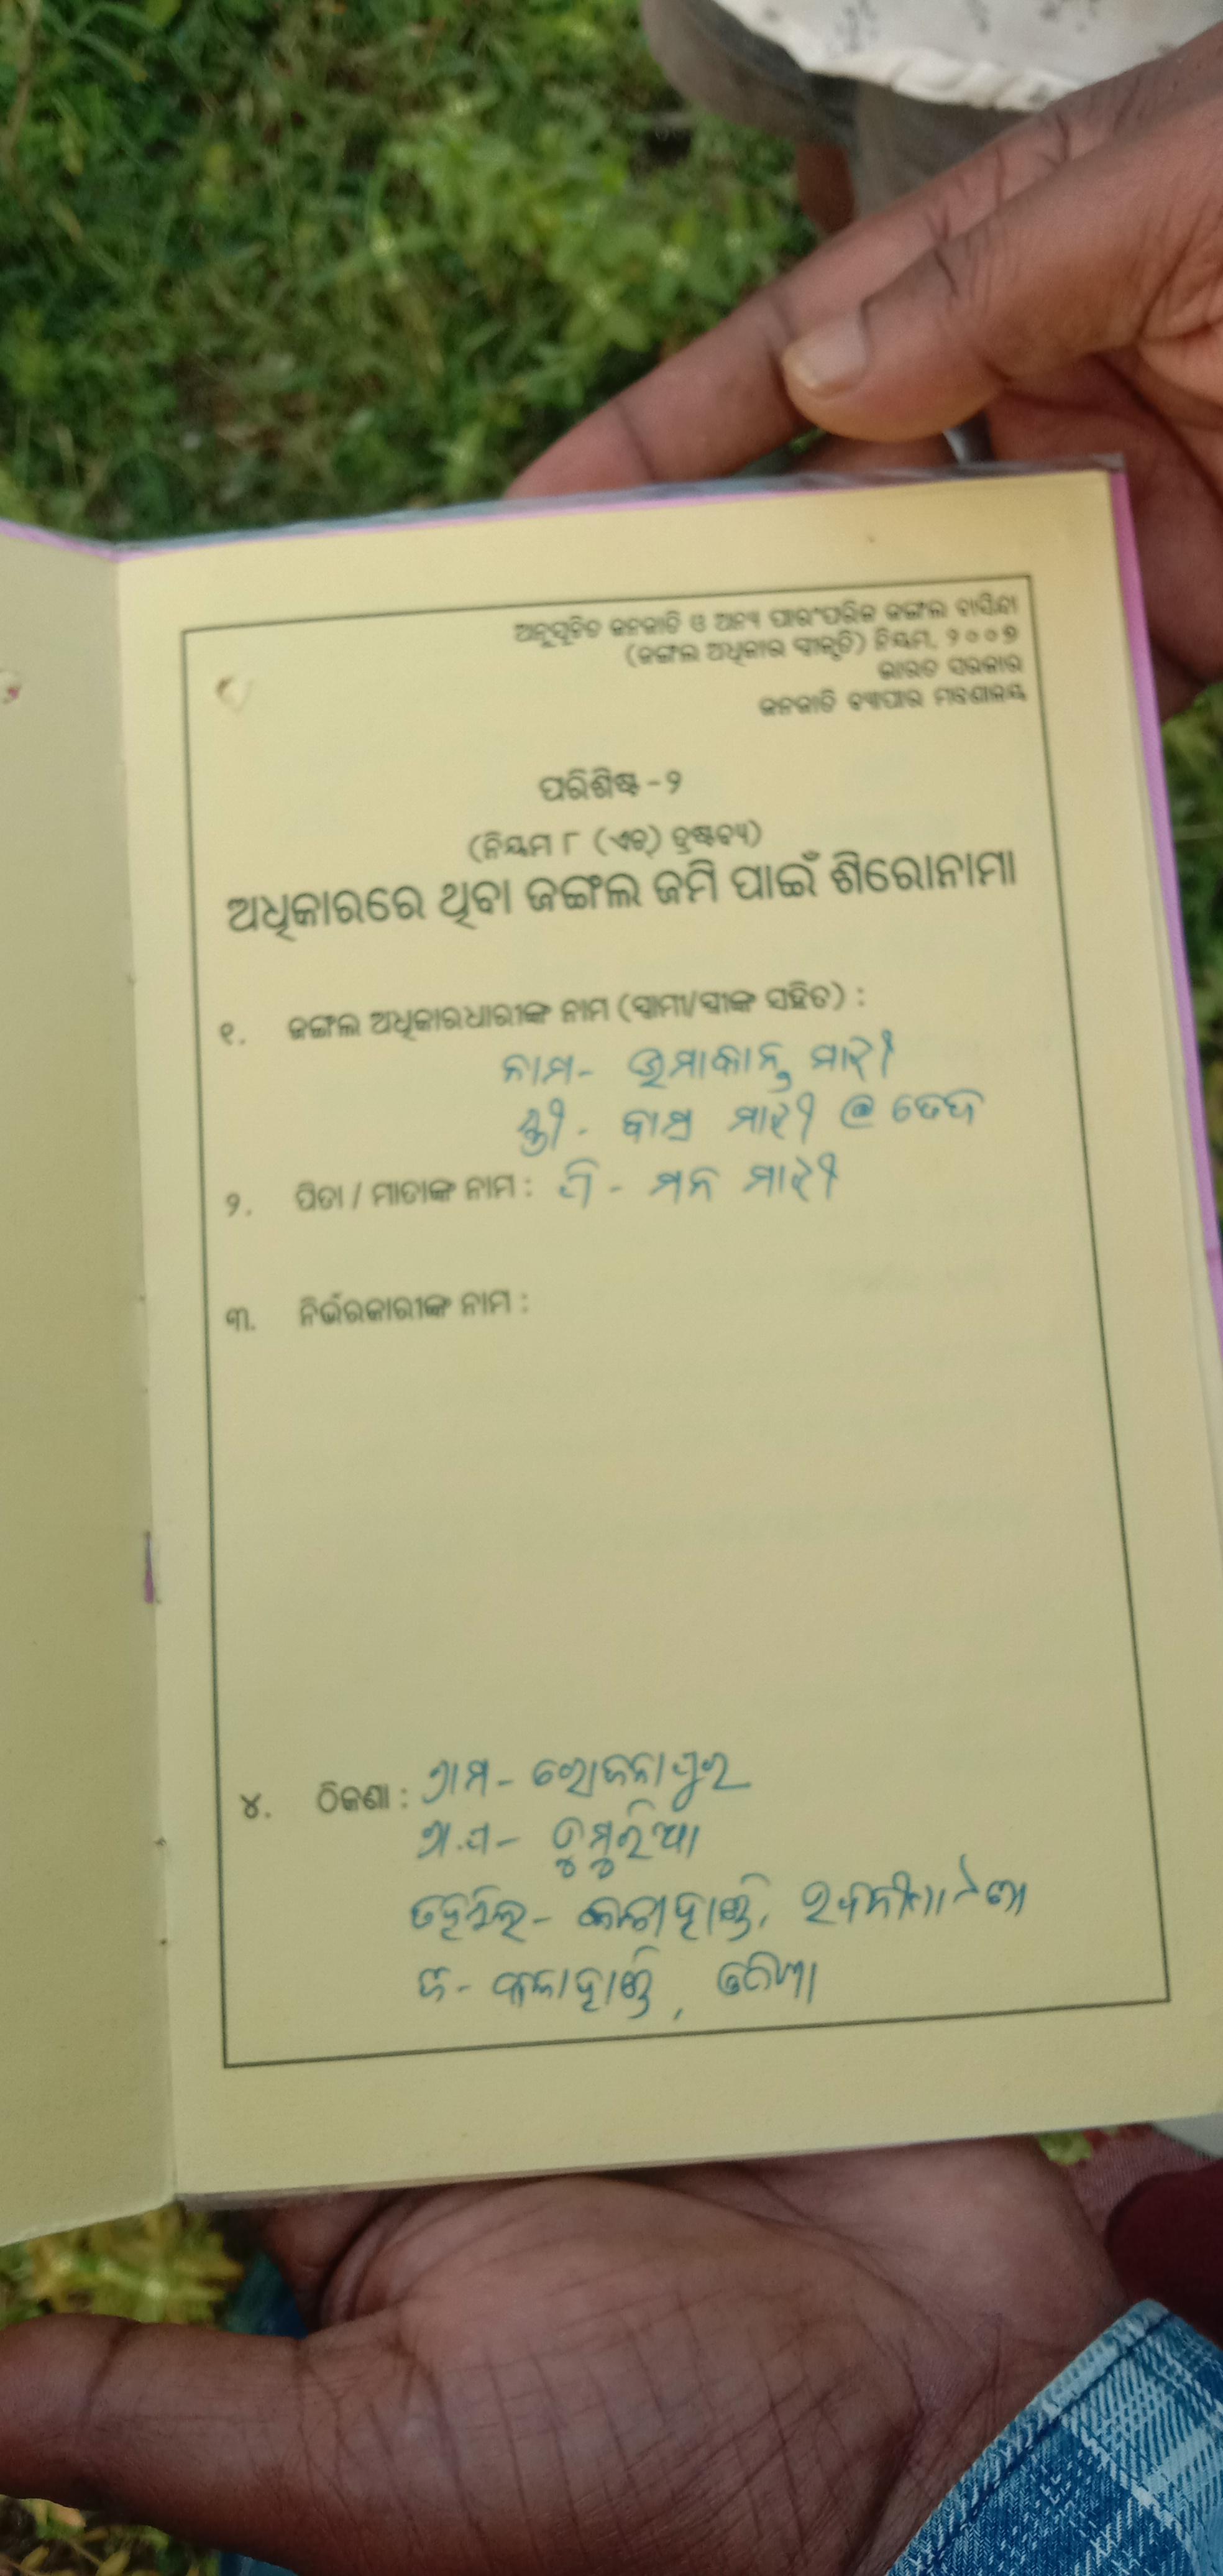 ଅନୁସୂଚିତ ଜନଜାତି ଓ ଅନ୍ୟ ପାରଂପରିକ ଜଙ୍ଗଲ ବାସିନ୍ଦା
(ଜଙ୍ଗଲ ଅଧିକାର ସ୍ୱୀକୃତି) ନିୟମ, ୨୦୦୭
ଭାରତ ସରକାର
ଜନଜାତି ବ୍ୟାପାର ମନ୍ତ୍ରଣାଳୟ
ପରିଶିଷ୍ଟ - ୨
(ନିୟମ ୮ (ଏଚ୍) ଦ୍ରଷ୍ଟବ୍ୟ)
ଅଧିକାରରେ ଥିବା ଜଙ୍ଗଲ ଜମି ପାଇଁ ଶିରୋନାମା
୧. ଜଙ୍ଗଲ ଅଧିକାରଧାରୀଙ୍କ ନାମ (ସ୍ୱାମୀ/ସ୍ତ୍ରୀଙ୍କ ସହିତ) :
ନାମ -  ମାଝୀ
ସ୍ତ୍ରୀ -  ମାଝୀ @
୨. ପିତା / ମାତାଙ୍କ ନାମ : ପି - ମନ ମାଝୀ
୩. ନିର୍ଭରକାରୀଙ୍କ ନାମ :
୪. ଠିକଣା : ଗ୍ରାମ -
ଗ୍ରା.ପ - ଡୁମୁରିଆ
ତହସିଲ -
ଜି - କଳାହାଣ୍ଡି, ଓଡିଶା